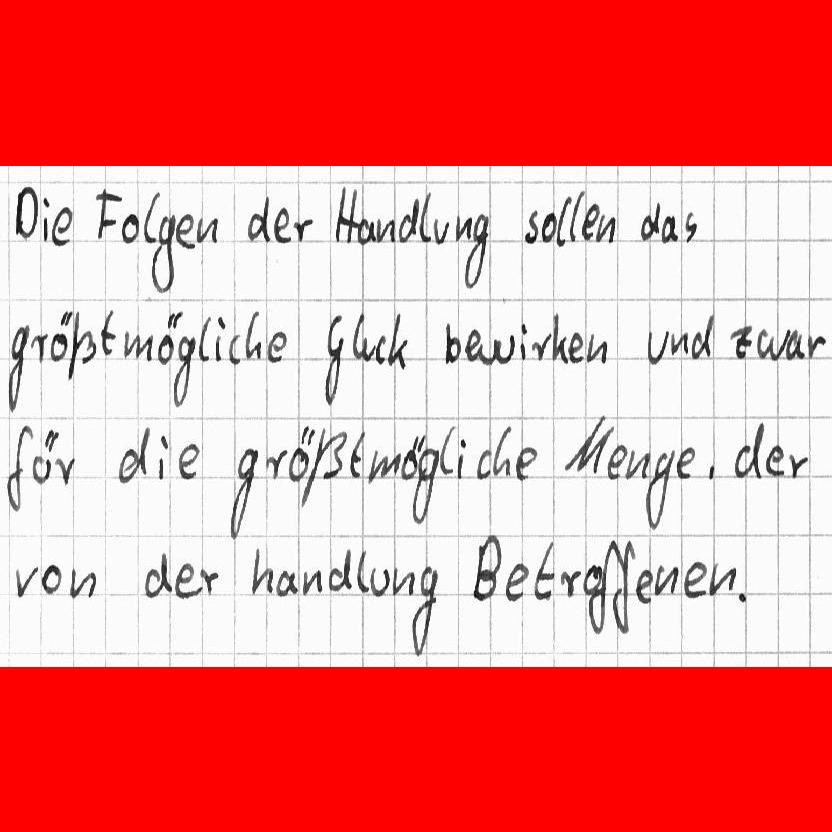 Die Folgen der Handlung sollen das
größtmögliche Gluck bewirken und zwar
für die größtmögliche Menge, der
von der handlung Betroffenen.